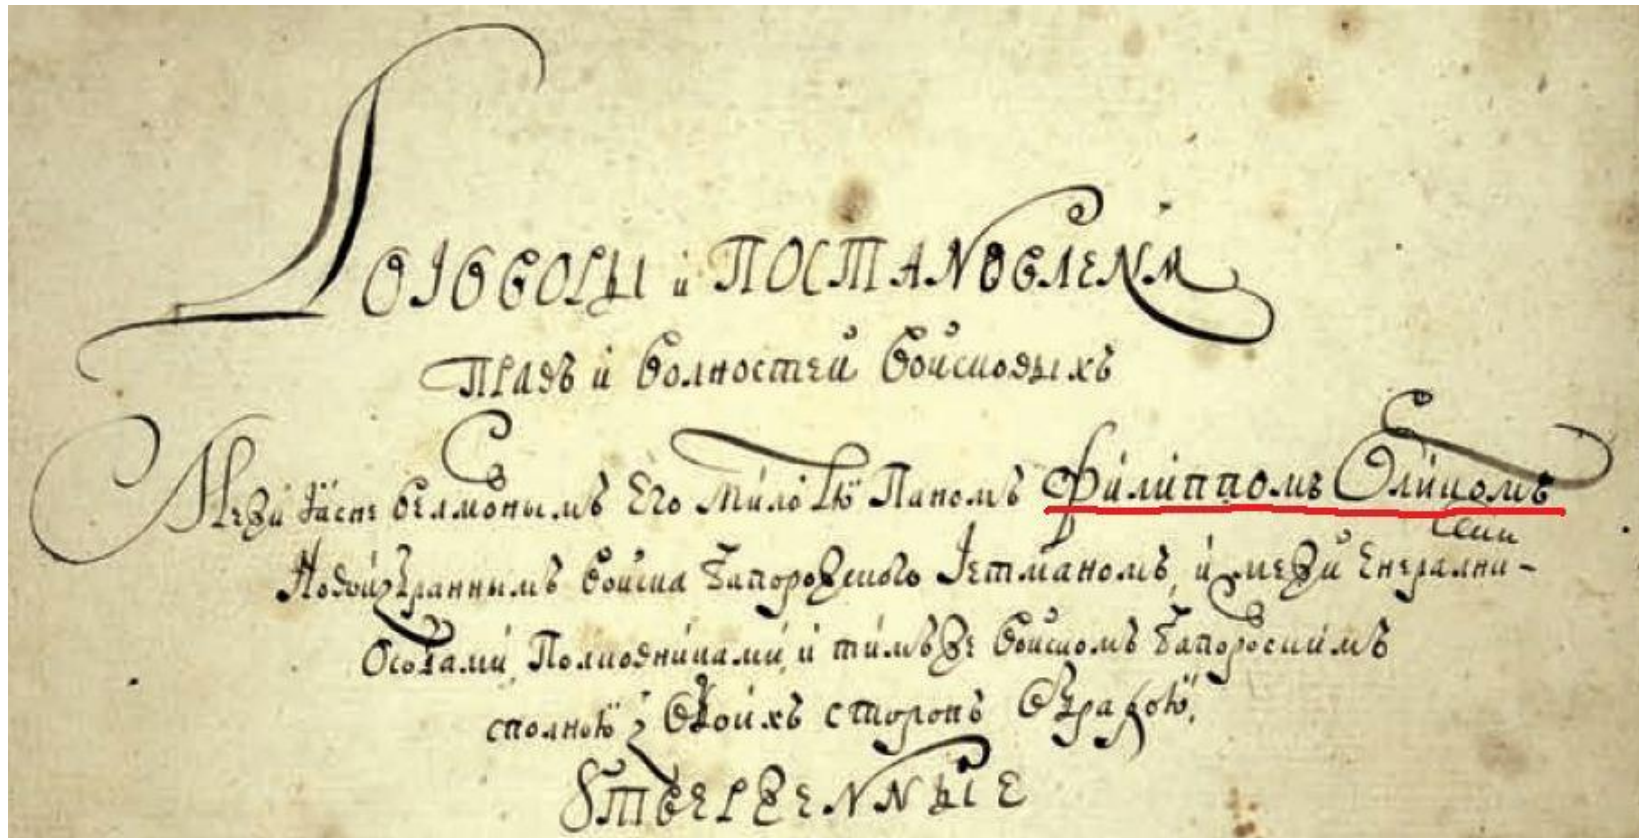 Договоры и ПОСТАНОВЛЕНЯ
Правъ и волностей войсковыхъ
Межи Ясне велможнымъ Его милостю Паномъ Филиппомъ Орликомъ
Новоизбраннымъ войска Запорожского Гетманомъ, и межи Енералними
Особами, Полковниками, и тимъ же войскомъ Запорозскимъ
сполною з обоихъ сторонъ обрадою,
Утвержденные